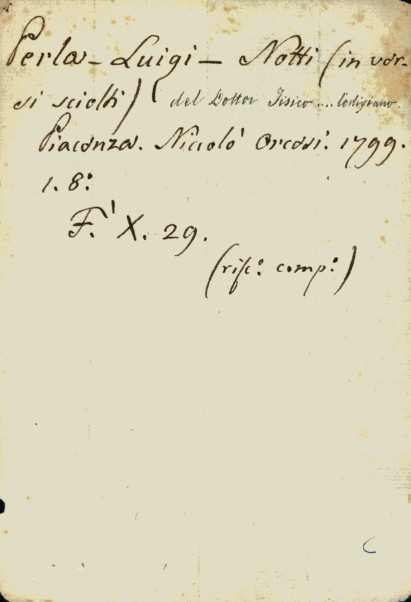 Perla - Luigi - Notti (in ver-
si sciolti) (del Dottor Fisico .... Lodigiano.
Piacenza. Niccolò Orcesi. 1799.
1. 8.°
F.' X. 29.
(risc.° comp.°)